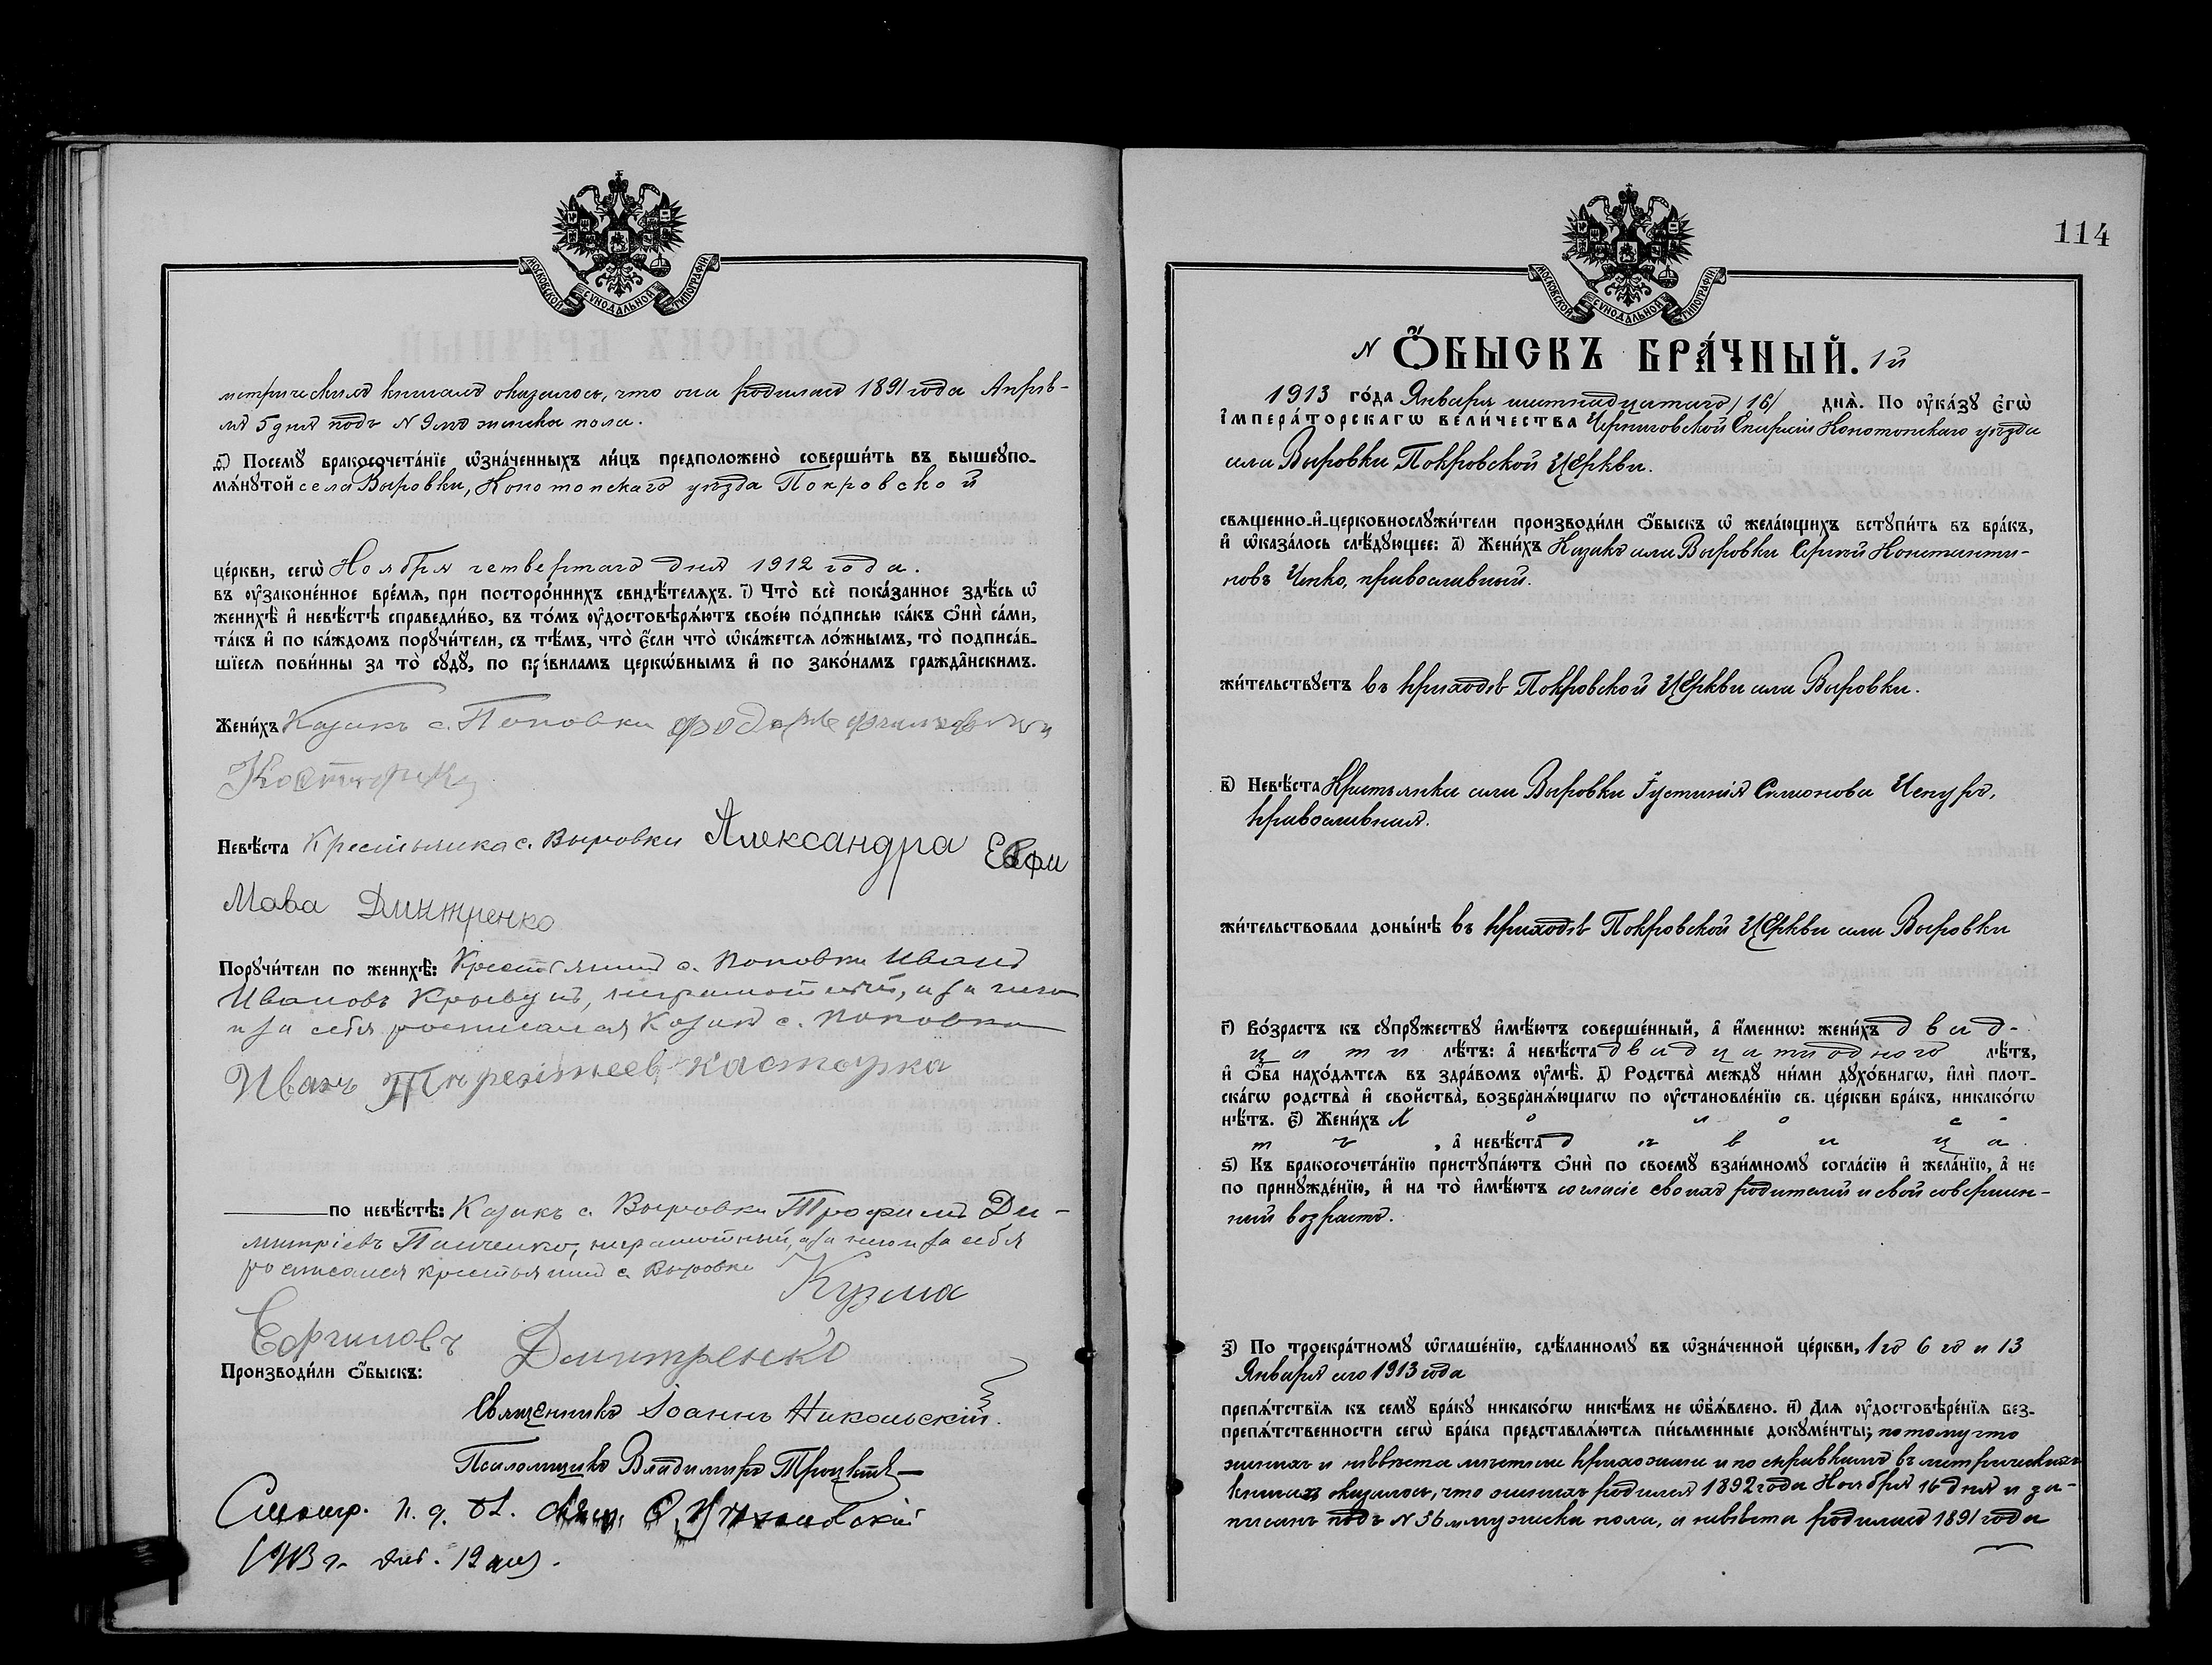 МОСКОВСКОЙ СУНОДАЛЬНОЙ ТИПОГРАФІИ
метрическимъ книгамъ оказалось, что она родилась 1891 года Апрѣ-
ля 5 дня подъ N 9мъ женска пола.
ѳ҃) Посемꙋ̀ бракосочета́нїе ѡ҆зна́ченныхъ ли́цъ предположено̀ соверши́ть въ вышеꙋпо-
мѧ́нꙋтой села Выровки, Конотопскаго уѣзда Покровской
це́ркви, сегѡ̀ Ноября четвертаго дня 1912 года.
въ ᲂу҆законе́нное вре́мѧ, при посторо́ннихъ свидѣ́телѧхъ. і҃) Что̀ всѐ пока́занное здѣ́сь ѡ҆
женихѣ̀ и҆ невѣ́стѣ справедли́во, въ то́мъ ᲂу҆достовѣрѧ́ютъ свое́ю по́дписью ка́къ ѻ҆нѝ са́ми,
та́къ и҆ по ка́ждомъ порꙋчи́тели, съ тѣ́мъ, что̀ є҆́сли что̀ ѡ҆ка́жетсѧ ло́жнымъ, то̀ подписа́в-
шїесѧ пови́нны за то̀ сꙋдꙋ̀, по пра́виламъ церкѡ́внымъ и҆ по зако́намъ гражда̑нскимъ.
Жени́хъ Казакъ с. Поповки
Невѣ́ста Крестьянка с. Выровки Александра Евфи
Мова Дмитренко
Порꙋчи́тели по женихѣ̀: Крестьянинъ с. Поповки Иванъ
Ивановъ Кривунъ, неграмотный, а за него
и за себя росписался Козакъ с. Поповки
Иванъ касторка
по невѣ́стѣ: Казакъ с. Выровки Трофимъ Ди-
митріевъ Панченко, неграмотный, а за него и за себя
росписался крестьянинъ с. Выровки Кузма
Ефимовъ Дмитренко
Производи́ли ѻ҆́быскъ:
Священникъ Іоаннъ Никольскій.
Псаломщикъ Владимиръ Троцкій
Смотр.
1913 г. 12 дня.
114
МОСКОВСКОЙ СУНОДАЛЬНОЙ ТИПОГРАФІИ
N Ѻ҆́БЫСКЪ БРА́ЧНЫЙ. 1й
1913 го́да Января шестнадцатаго /16/ днѧ̀. По ᲂу҆ка́зꙋ є҆гѡ̀
І҆мпера́торскагѡ вели́чества Черниговской Епархіи Конотопскаго уѣзда
села Выровки Покровской Церкви.
свѧщенно-и҆-церковнослꙋжи́тели производи́ли ѻ҆́быскъ ѡ҆ жела́ющихъ встꙋпи́ть въ бра́къ,
и҆ ѡ҆каза́лось слѣ́дꙋющее: а҃) Жени́хъ Казакъ села Выровки Сергій Константи-
новъ Чепко, православный.
жи́тельствꙋетъ въ приходѣ Покровской Церкви села Выровки.
в҃) Невѣ́ста Крестьянка села Выровки Іустинія Симонова Чепура,
православная.
жи́тельствовала доны́нѣ въ приходѣ Покровской Церкви села Выровки
г҃) Во́зрастъ къ сꙋпрꙋ́жествꙋ и҆мѣ́ютъ соверше́нный, а҆ и҆́менно: жени́хъ двад-
цати лѣ́тъ: а҆ невѣ́ста двадцатиодного лѣ́тъ,
и҆ ѻ҆́ба нахо́дѧтсѧ въ здра́вомъ ᲂу҆мѣ̀. д҃) Родства̀ междꙋ̀ ни́ми дꙋхо́внагѡ, и҆лѝ пло́т-
скагѡ родства̀ и҆ сво́йства, возбранѧ́ющагѡ по ᲂу҆становле́нїю св. це́ркви бра́къ, никако́гѡ
нѣ́тъ. є҃) Жени́хъ холос-
тъ, а҆ невѣ́ста дѣвица.
ѕ҃) Къ бракосочета́нїю пристꙋпа́ютъ ѻ҆нѝ по своемꙋ̀ взаи́мномꙋ согла́сїю и҆ жела́нїю, а҆ не
по принꙋжде́нїю, и҆ на то̀ и҆мѣ́ютъ согласіе своихъ родителей и свой совершен-
ный возрастъ.
з҃) По троекра́тномꙋ ѡ҆глаше́нїю, сдѣ́ланномꙋ въ ѡ҆зна́ченной це́ркви, 1го 6го и 13
Января сего 1913 года
препѧ́тствїѧ къ семꙋ̀ бра́кꙋ никако́гѡ никѣ́мъ не ѡ҆б̾ѧ́влено. и҃) Длѧ̀ ᲂу҆достовѣре́нїѧ без-
препѧ́тственности сегѡ̀ бра́ка представлѧ́ютсѧ пи́сьменные докꙋме́нты; потому что
женихъ и невѣста мѣстные прихожане и по справкамъ въ метрическихъ
книгахъ оказалось, что женихъ родился 1892 года Ноября 16 дня и за-
писанъ подъ N 36м мужска пола, а невѣста родилась 1891 года